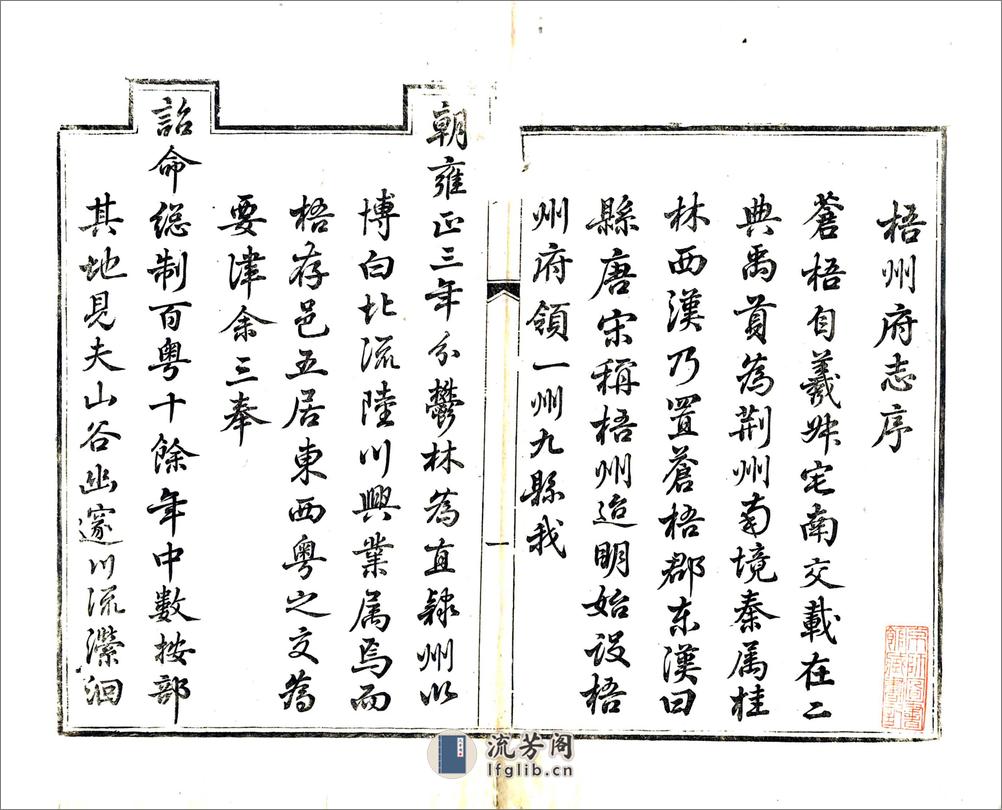 梧州府志序
蒼梧自羲叔宅南交載在二
典禹貢為荆州南境秦属桂
林西漢乃置蒼梧郡東漢曰
縣唐宋稱梧州迨明始設梧
州府領一州九縣我
朝雍正三年分鬱林為直隸州以
博白北流陸川興業属焉而
梧存邑五居東西粤之交為
要津余三奉
詔命總制百粤十餘年中數按部
其地見夫山谷幽邃川流瀠洄
一
流芳阁
lfglib.cn